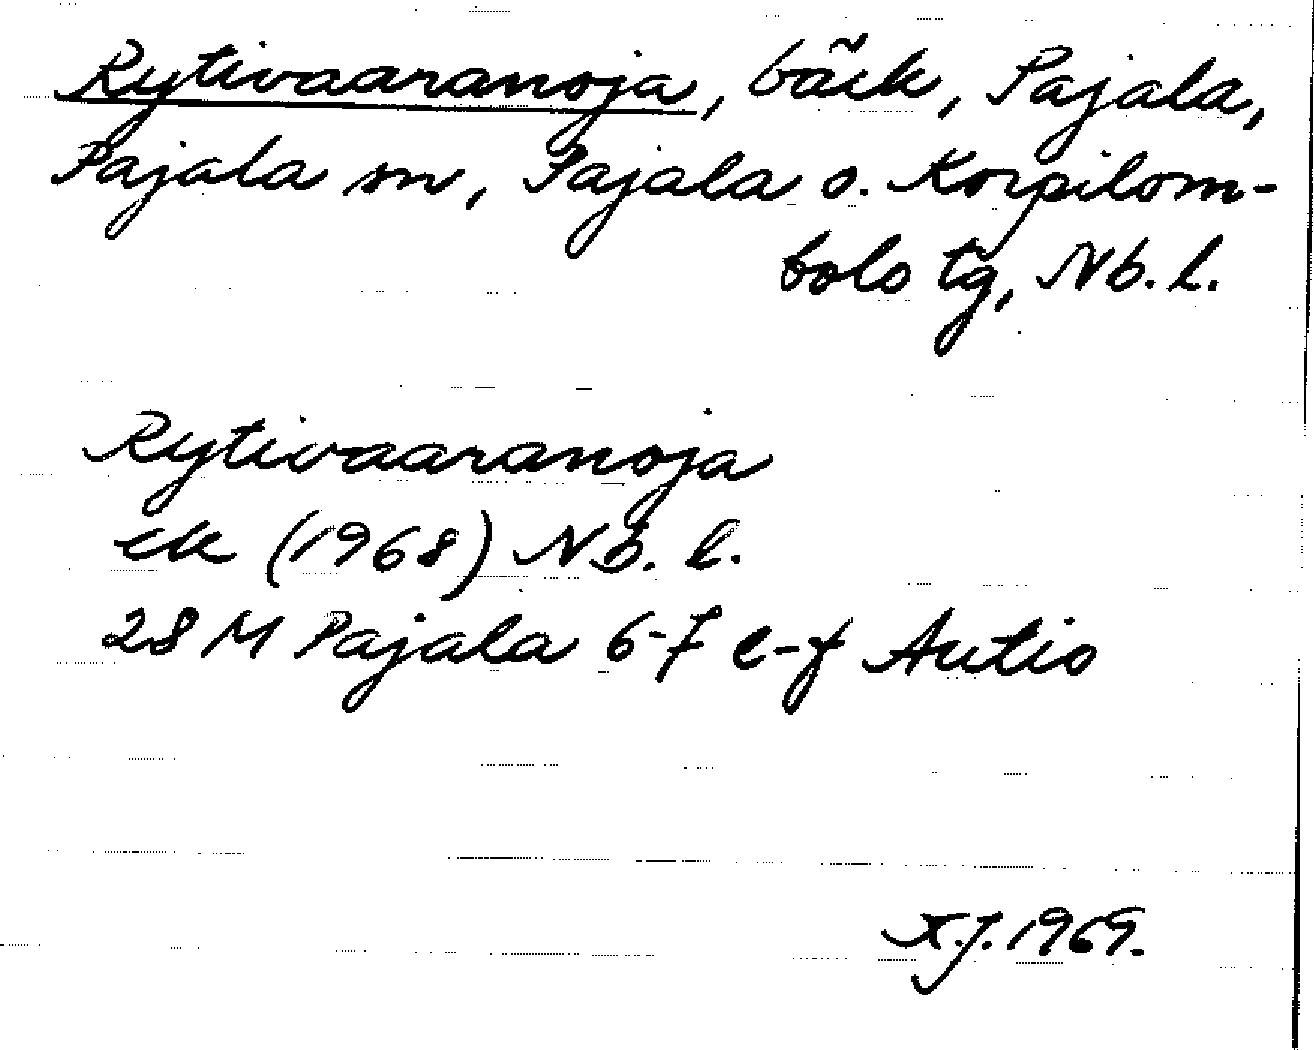 Rytivaaranoja, bäck, Pajala,
Pajala sn, Pajala o. Korpilom-
bolo tg, Nb. l.
Rytivaaranoja
ek (1968) Nb. l.
28 M Pajala 6-7 e-f Autio
X.J. 1969.